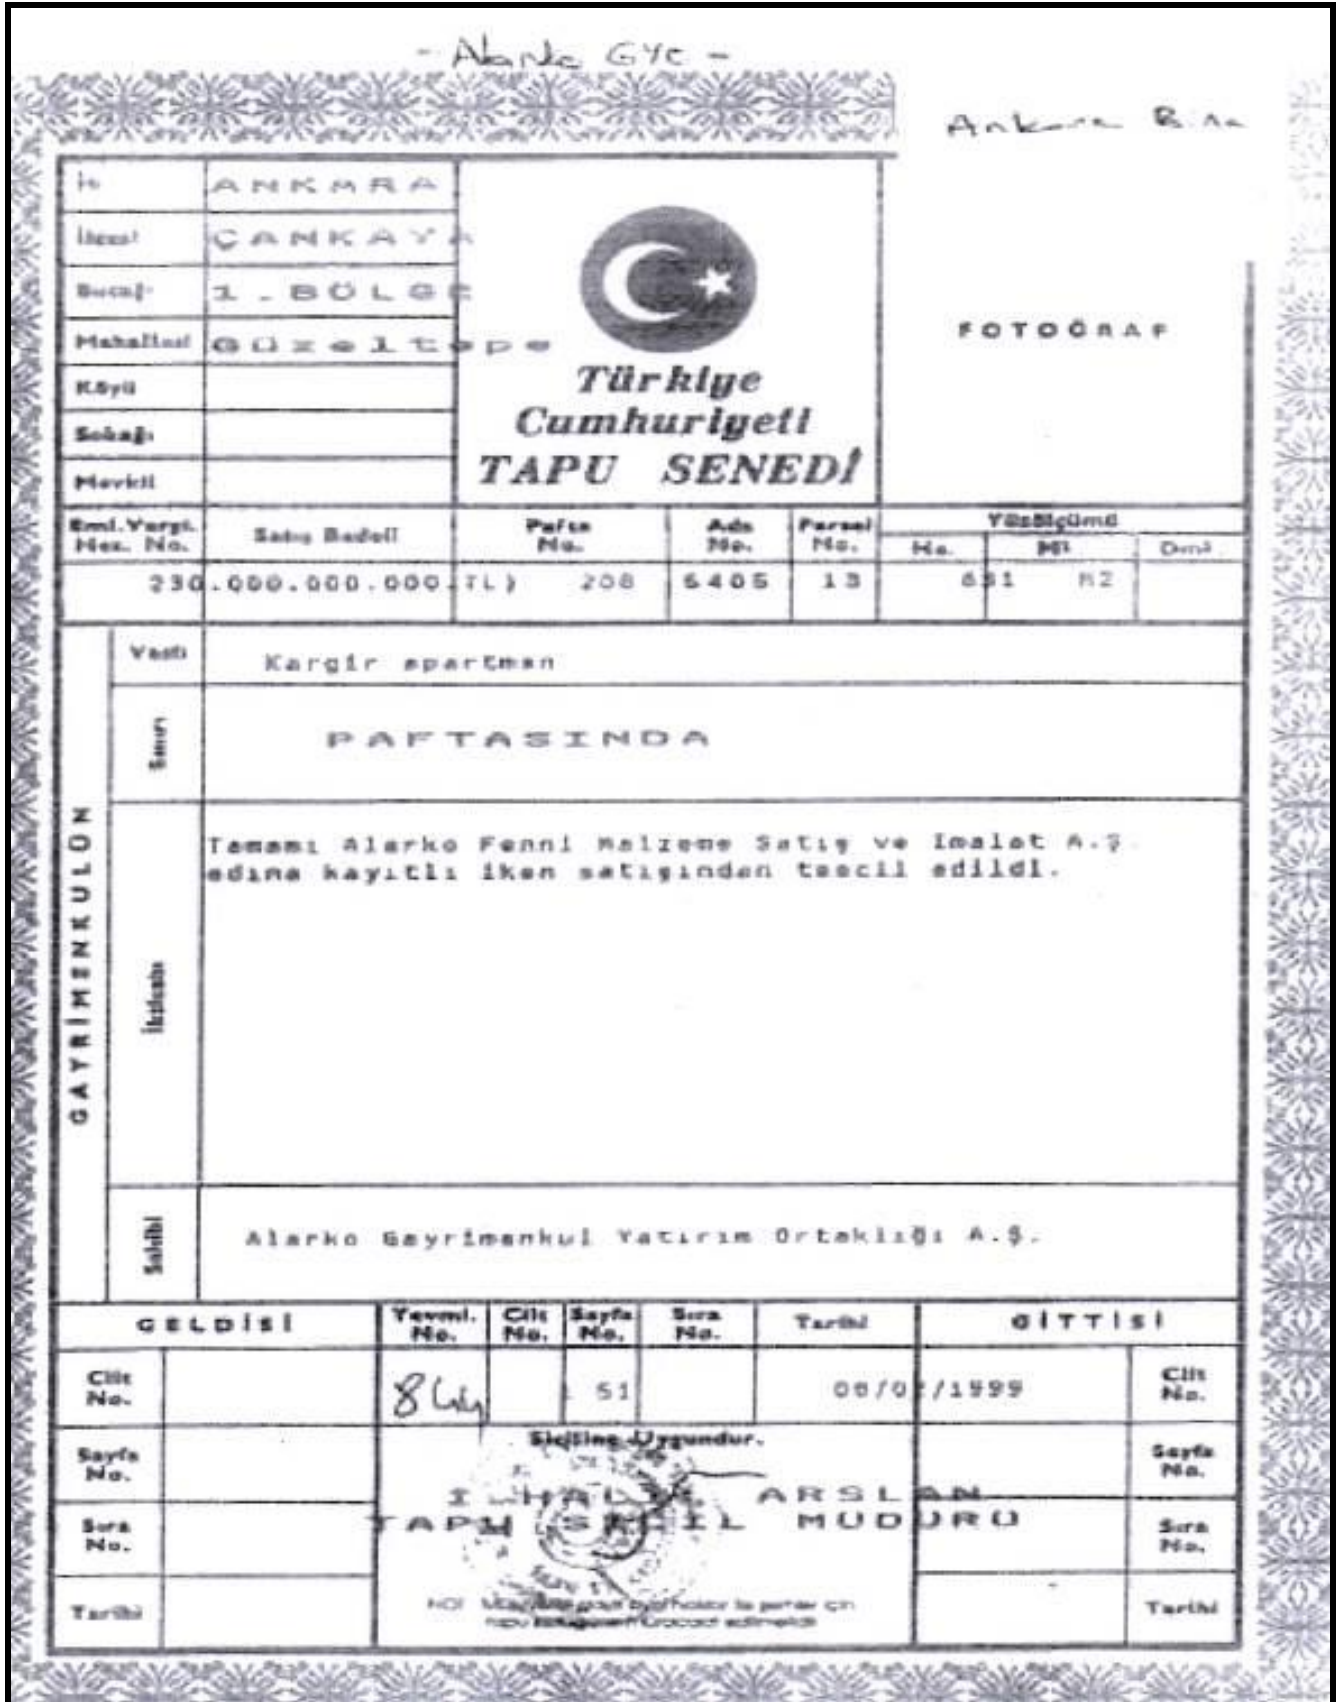 - Alarko GYO -
Ankara Bina
İli ANKARA
İlçesi ÇANKAYA
Bucağı 1.BÖLGE
Mahallesi Güzeltepe
Köyü
Sokağı
Mevkii
Türkiye
Cumhuriyeti
TAPU SENEDİ
FOTOĞRAF
Eml.Vergi. Hes. No.
Satış Bedeli
Pafta No.
Ada No.
Parsel No.
Yüzölçümü
Ha. M² Dm²
230.000.000.000.TL) 208 6405 13 M2
GAYRİMENKULÜN
Vasfı Kargir apartman
Sınırı PAFTASINDA
İktisabı
Tamamı Alarko Fenni Malzeme Satış ve Imalat A.Ş.
adına kayıtlı iken satışından tescil edildi.
Sahibi Alarko Gayrimenkul Yatırım Ortaklığı A.Ş.
GELDİSİ
Yevmi. No.
Cilt No.
Sayfa No.
Sıra No.
Tarihi
GİTTİSİ
Cilt No.
844 51 /1999
Cilt No.
Siciline Uygundur.
Sayfa No.
Sayfa No.
ARSLAN
TAPU SİCİL MÜDÜRÜ
Sıra No.
Sıra No.
Tarihi
NOT
tapu kütüğüne müracaat edilmelidir
Tarihi